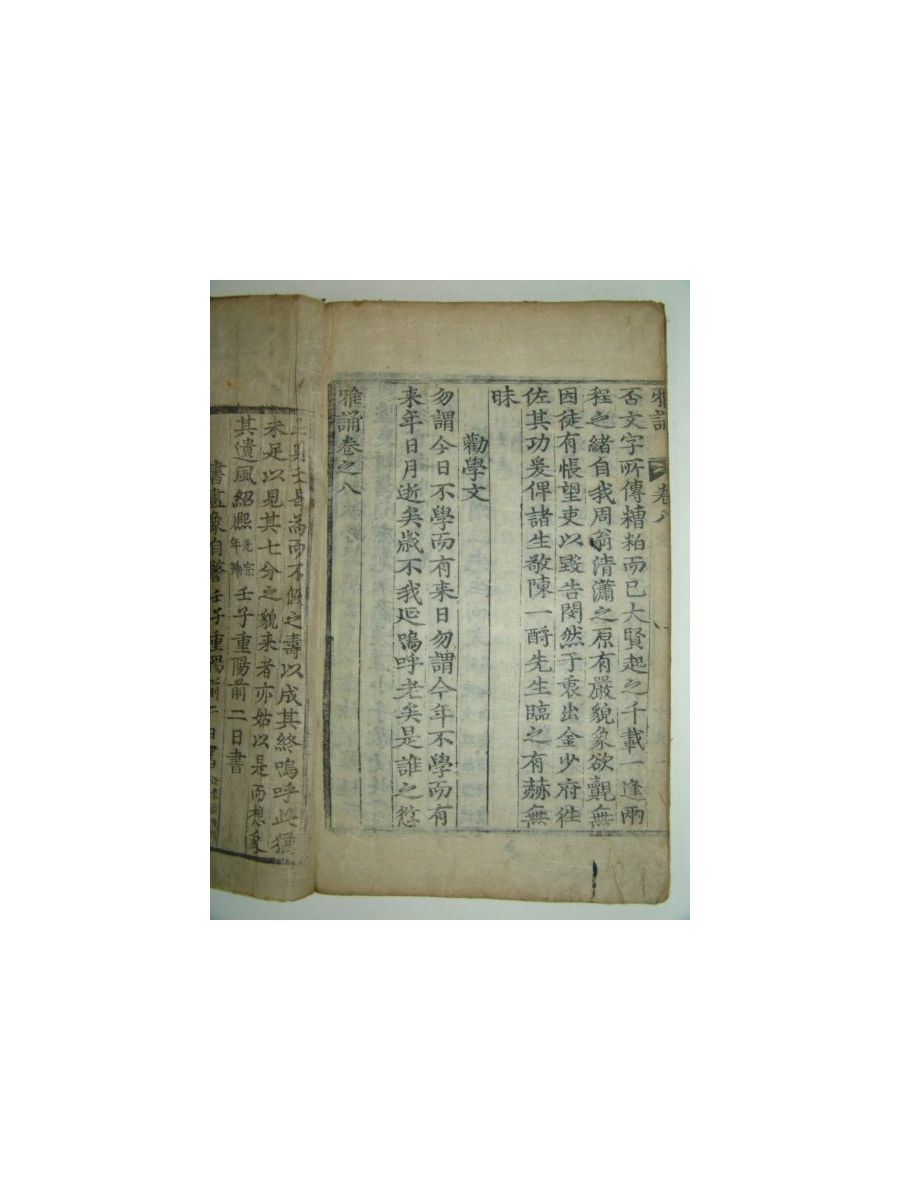 雅誦 卷八
否文字所傳糟粕而已大賢起之千載一逢兩
程之緒自我周翁清瀟之原有嚴貌象欲覿無
因徒有悵望吏以毀告閔然于衷出金少府往
佐其功爰俾諸生敬陳一酹先生臨之有赫無
昧
勸學文
勿謂今日不學而有来日勿謂今年不學而有
来年日月逝矣歲不我延嗚呼老矣是誰之愆
雅誦卷之八
而不假之壽以成其終嗚呼此猶
未足以見其七分之貌来者亦姑以是而想象
其遺風紹熙光宗年號壬子重陽前二日書
書畫像自警壬子重陽前二日書